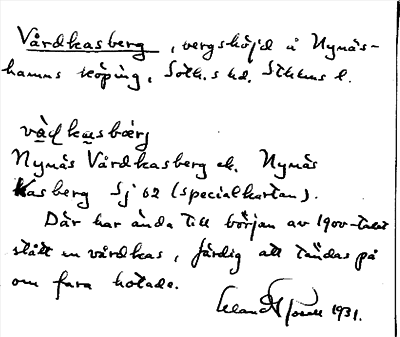 Vårdkasberg, bergshöjd i Nynäs-
hamns köping, Soth.s hd. Sthlms l.
vạ̊ḍkạsbærj
Nynäs Vårdkasberg el. Nynäs
Kasberg Sj 62 (specialkartan).
Där har ända till början av 1900-talet
stått en vårdkas, färdig att tändas på
om fara hotade.
1931.